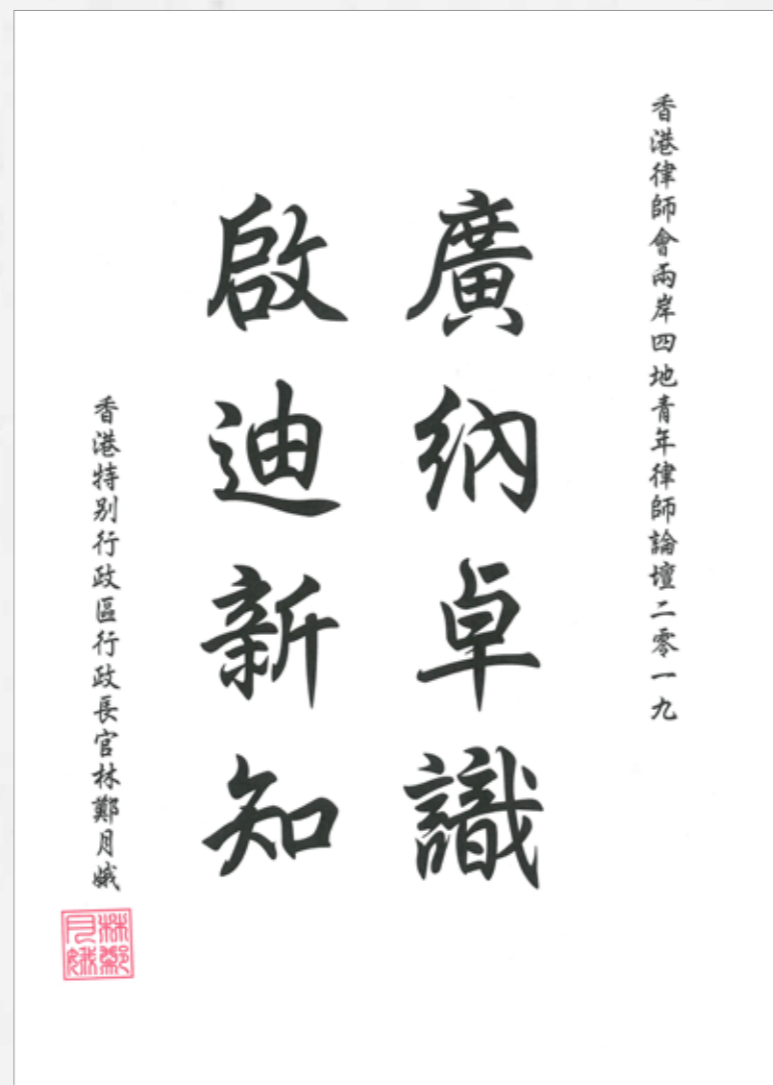 香港律師會兩岸四地青年律師論壇二零一九
廣納卓識
啟迪新知
香港特别行政區行政長官林鄭月娥
林鄭月娥